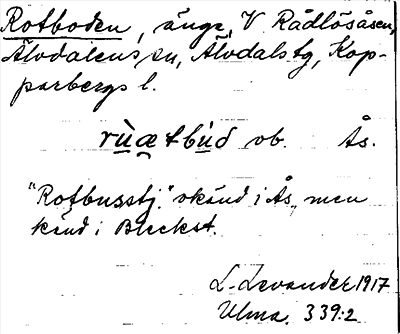 Rotboden, änge, V Rädlösåsen,
Älvdalens sn, Älvdals tg, Kop-
parbergs l.
rùætbùð ob. Ås.
"Rotbusstj." okänd i Ås, men
känd i Bleckst.
L. Levander 1917
Ulma. 339:2